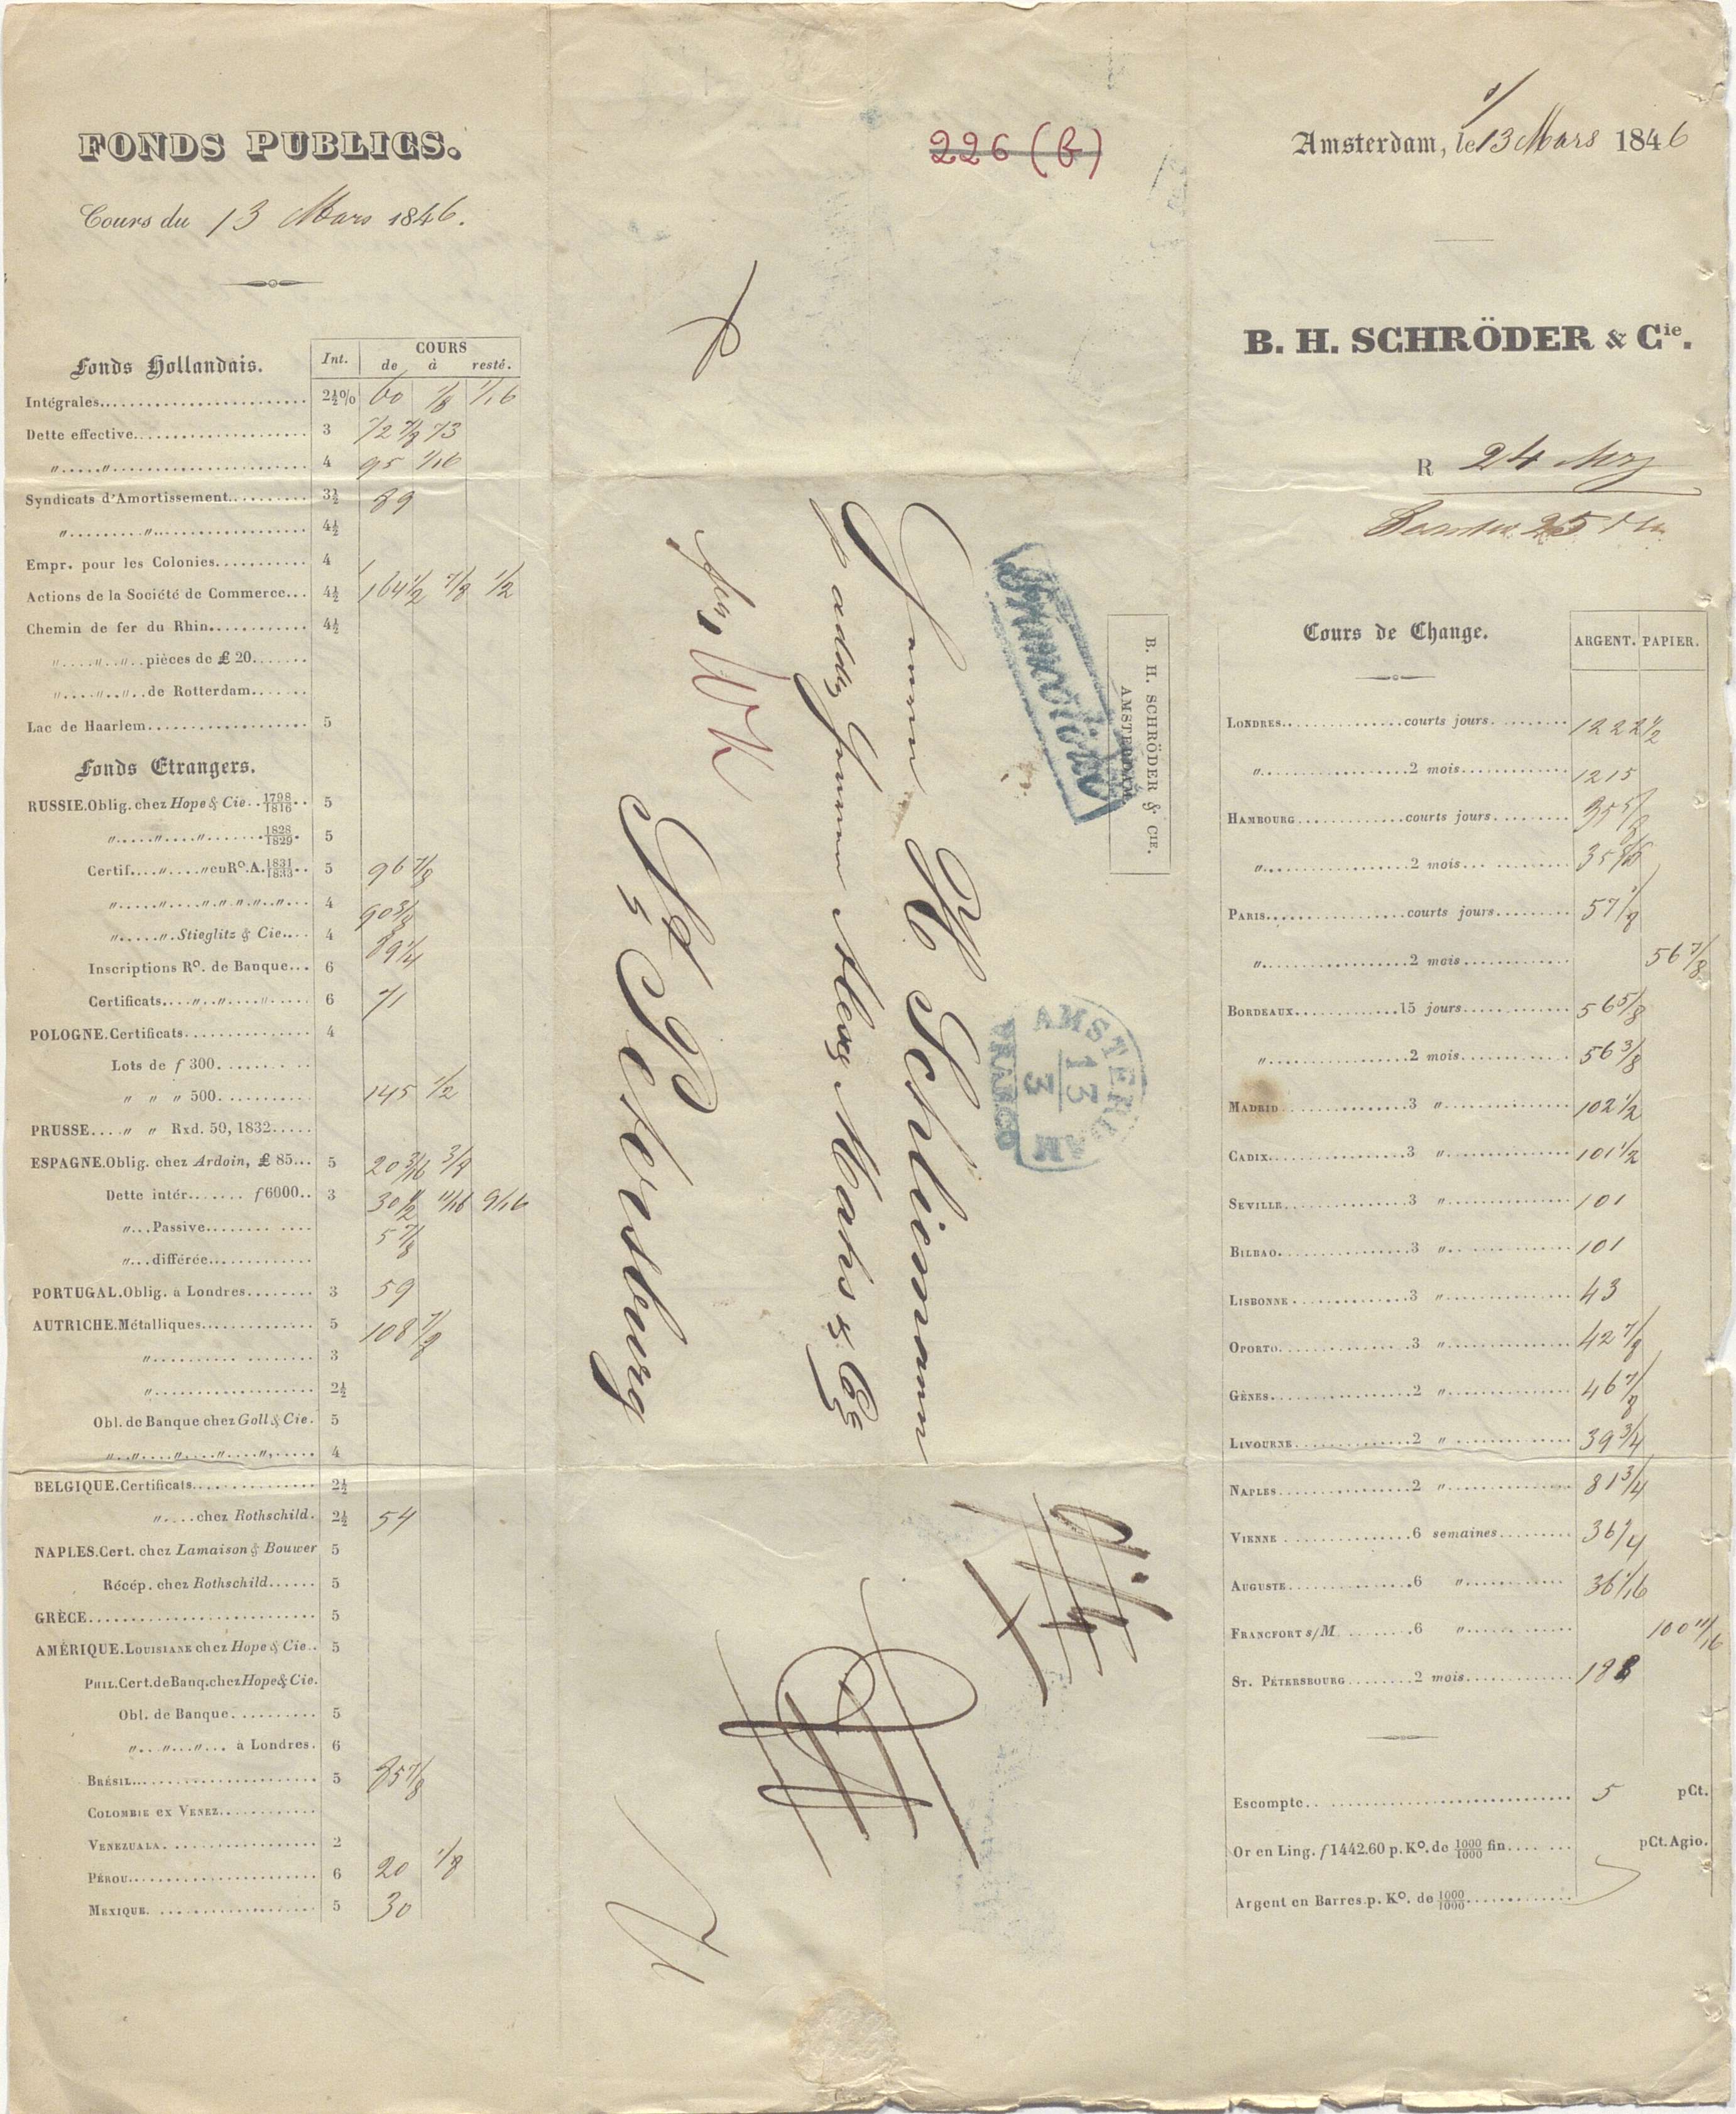 FONDS PUBLICS.
Cours du 13 Mars 1846.
Fonds Hollandais. Int. COURS
de à resté.
Intégrales 2½% 60 1/8 1/16
Dette effective 3 72 7/8 73
" " 4 95 1/16
Syndicats d'Amortissement 3½ 89
" " 4½
Empr. pour les Colonies 4
Actions de la Société de Commerce 4½ 164½ 7/8 1/2
Chemin de fer du Rhin 4½
" " " pièces de £ 20
" " " de Rotterdam
Lac de Haarlem 5
Fonds Etrangers.
RUSSIE. Oblig. chez Hope & Cie 1798/1816 5
" " " 1828/1829 5
Certif. " " en Ro. A. 1831/1833 5 96 7/8
" " " " " " " 4 90 3/8
" " Stieglitz & Cie 4 89 1/4
Inscriptions Ro. de Banque 6
Certificats " " " 6 71
POLOGNE. Certificats 4
Lots de f 300
" " " 500 145 1/2
PRUSSE " " Rxd. 50, 1832
ESPAGNE. Oblig. chez Ardoin, £ 85 5 20 3/16
Dette intér. f 6000 3 30 1/2 11/16 9/16
" Passive 5 7/8
" différée
PORTUGAL. Oblig. à Londres 3 59
AUTRICHE. Métalliques 5 108 7/8
" 3
" 2½
Obl. de Banque chez Goll & Cie. 5
" " " " " 4
BELGIQUE. Certificats 2½
" chez Rothschild. 2½ 54
NAPLES. Cert. chez Lamaison & Bouwer 5
Récép. chez Rothschild 5
GRÈCE 5
AMÉRIQUE. LOUISIANE chez Hope & Cie 5
PHIL. Cert. de Banq. chez Hope & Cie.
Obl. de Banque 5
" " " à Londres. 6
BRÉSIL 5 85 7/8
COLOMBIE ex VENEZ.
VENEZUALA 2
PÉROU 6 20 1/8
MEXIQUE 5 30
226 (b)
Herrn H Schliemann
p addr Herren Alexy Mahs & Co
St Petersburg
B. H. SCHRÖDER & CIE.
AMSTERDAM
AMSTERDAM
13
3
FRANCO
Amsterdam, le 13 Mars 1846
B. H. SCHRÖDER & Cie.
R 24 Mrz
25
Cours de Change. ARGENT. PAPIER.
LONDRES courts jours 1222½
" 2 mois 1215
HAMBOURG courts jours 35 5/8
" 2 mois
PARIS courts jours 57 1/8
" 2 mois 56 7/8
BORDEAUX 15 jours 56 5/8
" 2 mois 56 3/8
MADRID 3 " 102 1/2
CADIX 3 " 101 1/2
SEVILLE 3 " 101
BILBAO 3 " 101
LISBONNE 3 " 43
OPORTO 3 " 42 7/8
GÊNES 2 " 46 7/8
LIVOURNE 2 " 39 3/4
NAPLES 2 " 81 3/4
VIENNE 6 semaines
AUGUSTE 6 " 36 1/16
FRANCFORT s/M 6 " 100 11/16
ST. PÉTERSBOURG 2 mois 188
Escompte 5 pCt.
Or en Ling. f 1442.60 p. Ko. de 1000/1000 fin pCt. Agio.
Argent en Barres p. Ko. de 1000/1000